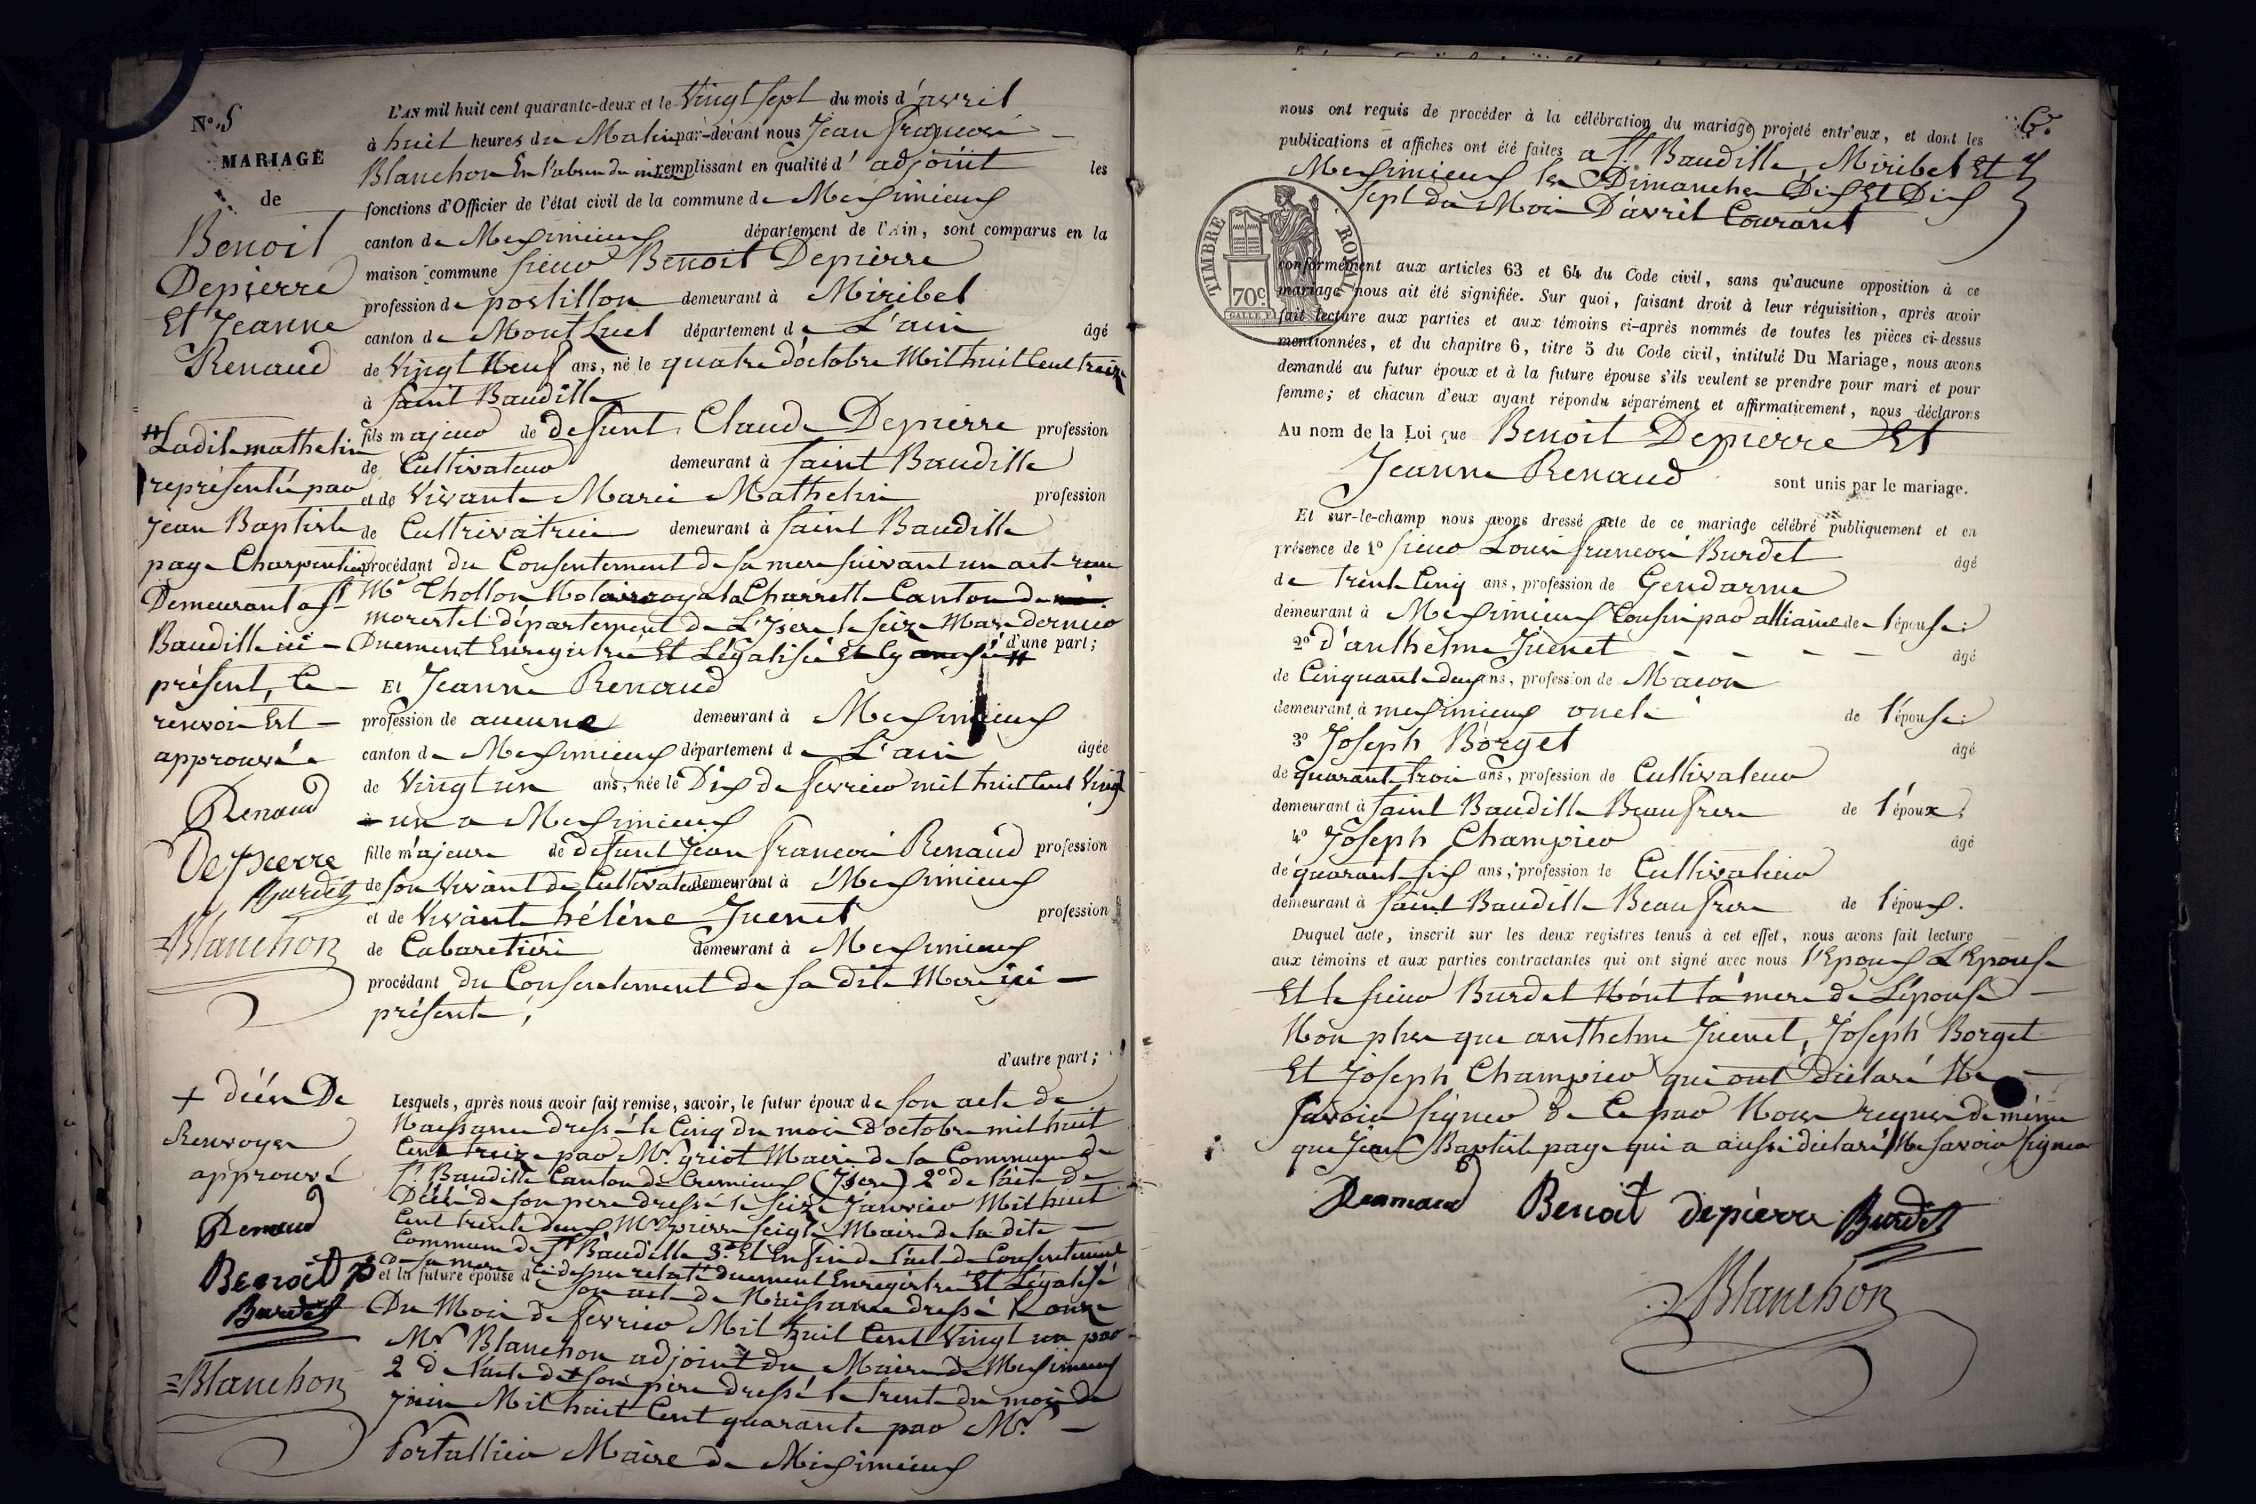 N.o 5
MARIAGE
de
Benoit
Depierre
Et Jeanne
Renaud
L'AN mil huit cent quarante-deux et le Vingt sept du mois d'avril
à huit heures du Matin par-devant nous Jean françois
Blanchon En l'absence du maire remplissant en qualité d'adjoint les
fonctions d'Officier de l'état civil de la commune de Meximieux
canton de Meximieux département de l'Ain, sont comparus en la
maison commune sieur Benoit Depierre
profession de postillon demeurant à Miribel
canton de Montluel département de L'ain âgé
de Vingt Neuf ans, né le quatre d'octobre Mil huit Cent treize
à Saint Baudille
fils majeur de defunt Claude Depierre profession
de Cultivateur demeurant à Saint Baudille
et de Vivante Marie Mathelin profession
de Cultivatrice demeurant à Saint Baudille
procédant du Consentement de sa mere suivant un acte
Me Chollon Notaire royal a Charrette Canton de
morestel département de L'Isere le seize Mars dernier
Duement Enregistré Et Légalisé d'une part;
Ladite mathelin
représenté par
Jean Baptiste
page Charpentier
Demeurant a St
Baudille ici
présent, Ce
renvoi Est
approuvé
Renaud
Depierre
Burdet
Blanchon
Et Jeanne Renaud
profession de aucune demeurant à Meximieux
canton de Meximieux département de L'ain âgée
de Vingt un ans, née le Dix de fevrier mil huit Cent Vingt
un a Meximieux
fille majeure de defunt Jean francois Renaud profession
de son Vivant de Cultivateur demeurant à Meximieux
et de Vivante hélène Juenet profession
de Cabaretière demeurant à Meximieux
procédant du Consentement de sa dite Mere ici
présente,
d'autre part;
Lesquels, après nous avoir fait remise, savoir, le futur époux de son acte de
Naissance dressé le Cinq du mois d'octobre mil huit
Cent treize par Mr. griot Maire de la Commune de
St. Baudille Canton de Cremieux (Isere) 2o de l'acte de
Décé de son pere dressé le seize Janvier Mil huit
Cent trente deux Mr pierre Maire de la dite
Commune de St Baudille 3o Et Enfin de l'acte de Consentement
de sa mere ci dessus relaté duement Enregistré Et Légalisé
et la future épouse de son acte de Naissance dressé le onze
Du Mois de fevrier Mil huit Cent Vingt un par
Mr Blanchon adjoint du Maire de Meximieux
2 de l'acte de + son père dressé le trente du mois de
juin Mil huit Cent quarante par Mr.
Portallier Maire de Meximieux
+ décés De
Renvoyer
approuvé
Renaud
Benoit
Burdet
Blanchon
6.
nous ont requis de procéder à la célébration du mariage projeté entr'eux, et dont les
publications et affiches ont été faites a St. Baudille, Miribel Et
Meximieux les Dimanches Dix Et Dix
sept du Mois D'avril Courant
TIMBRE ROYAL
70c
conformément aux articles 63 et 64 du Code civil, sans qu'aucune opposition à ce
mariage nous ait été signifiée. Sur quoi, faisant droit à leur réquisition, après avoir
fait lecture aux parties et aux témoins ci-après nommés de toutes les pièces ci-dessus
mentionnées, et du chapitre 6, titre 5 du Code civil, intitulé Du Mariage, nous avons
demandé au futur époux et à la future épouse s'ils veulent se prendre pour mari et pour
femme; et chacun d'eux ayant répondu séparément et affirmativement, nous déclarons
Au nom de la Loi que Benoit Depierre Et
Jeanne Renaud sont unis par le mariage.
Et sur-le-champ nous avons dressé acte de ce mariage célébré publiquement et en
présence de 1o sieur Louis francois Burdet âgé
de trente Cinq ans, profession de Gendarme
demeurant à Meximieux Cousin par alliance de l'épouse;
2o d'anthelme Juenet âgé
de Cinquante deux ans, profession de Macon
demeurant à meximieux oncle de l'épouse;
3o Joseph Borget âgé
de quarante trois ans, profession de Cultivateur
demeurant à Saint Baudille Beaufrere de l'époux;
4o Joseph Champier âgé
de quarante six ans, profession de Cultivateur
demeurant à Saint Baudille Beaufrere de l'époux.
Duquel acte, inscrit sur les deux registres tenus à cet effet, nous avons fait lecture
aux témoins et aux parties contractantes qui ont signé avec nous l'Epoux L'Epouse
Et le sieur Burdet Nont la mere de L'épouse
Non plus que anthelme Juenet, Joseph Borget
Et Joseph Champier qui ont déclaré Ne
Savoir signer de Ce par Nous requis de même
que Jean Baptiste page qui a aussi déclaré Ne Savoir signer
Renaud Benoit depierre Burdet
Blanchon